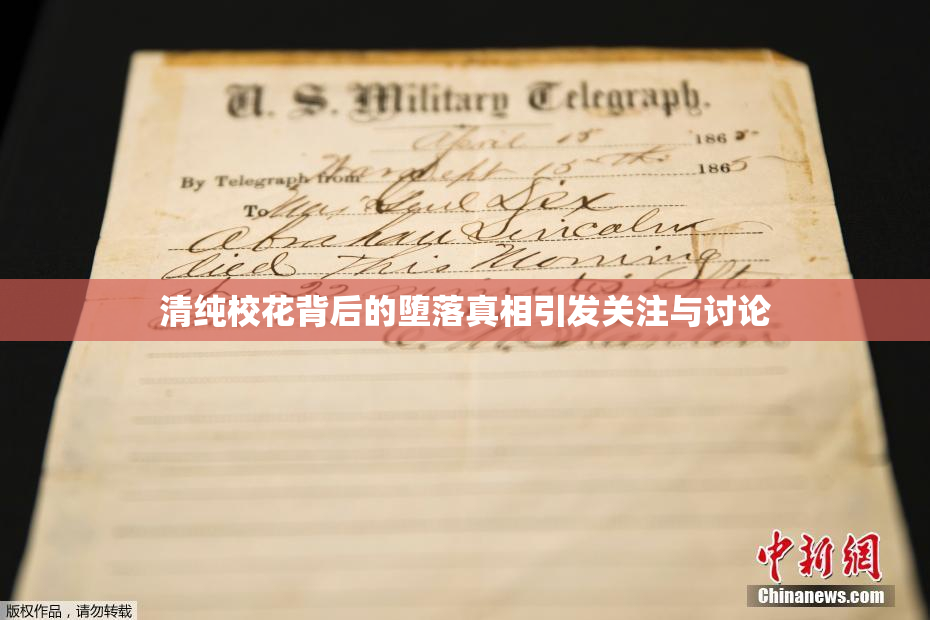 U. S. Military Telegraph.
April 15 1865
By Telegraph from War Dept 15th 1865
To Maj Genl Dix
Abraham Lincoln
died This Morning
at 22 minutes after
清纯校花背后的堕落真相引发关注与讨论
中新网
Chinanews.com
版权作品，请勿转载